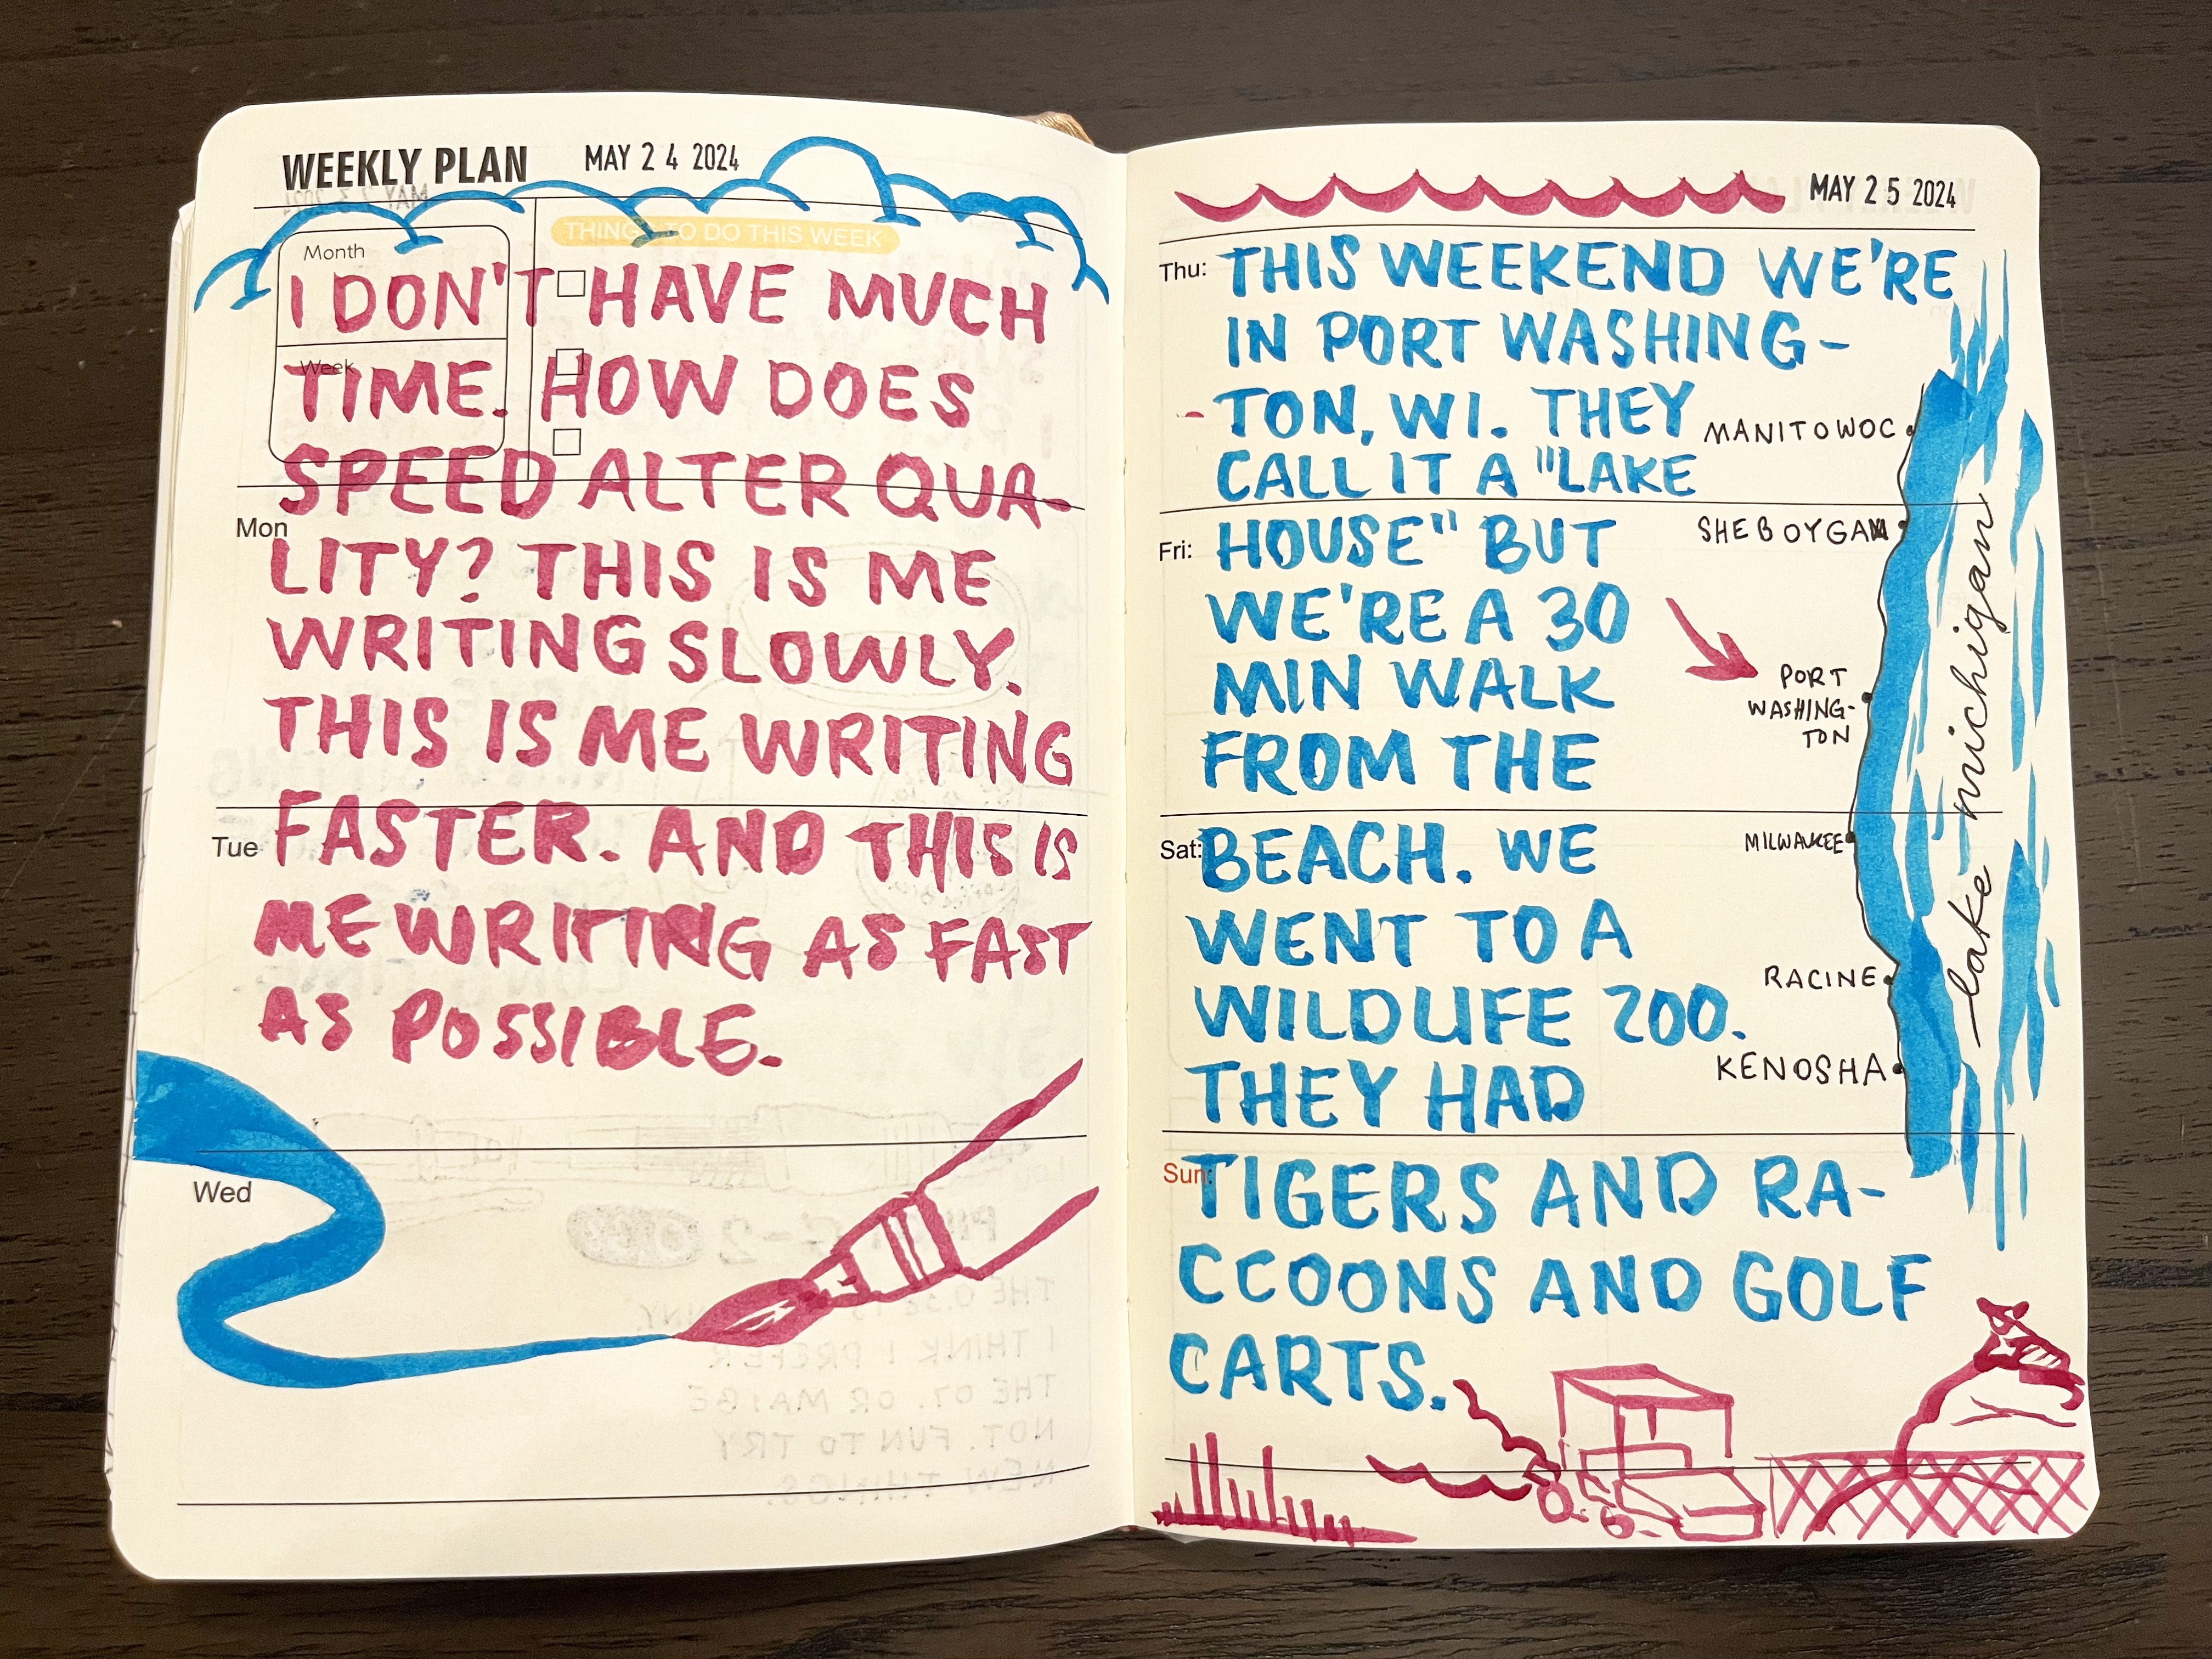 WEEKLY PLAN MAY 24 2024
THINGS TO DO THIS WEEK
Month
I DON'T HAVE MUCH
Week
TIME. HOW DOES
SPEED ALTER QUA-
Mon
LITY? THIS IS ME
WRITING SLOWLY.
THIS IS ME WRITING
Tue
FASTER. AND THIS IS
ME WRITING AS FAST
AS POSSIBLE.
Wed
MAY 25 2024
Thu:
THIS WEEKEND WE'RE
IN PORT WASHING-
TON, WI. THEY
CALL IT A "LAKE
Fri:
HOUSE" BUT
WE'RE A 30
MIN WALK
FROM THE
Sat:
BEACH. WE
WENT TO A
WILDLIFE ZOO.
THEY HAD
Sun:
TIGERS AND RA-
CCOONS AND GOLF
CARTS.
MANITOWOC
SHEBOYGAN
PORT
WASHING-
TON
MILWAUKEE
RACINE
KENOSHA
lake michigan